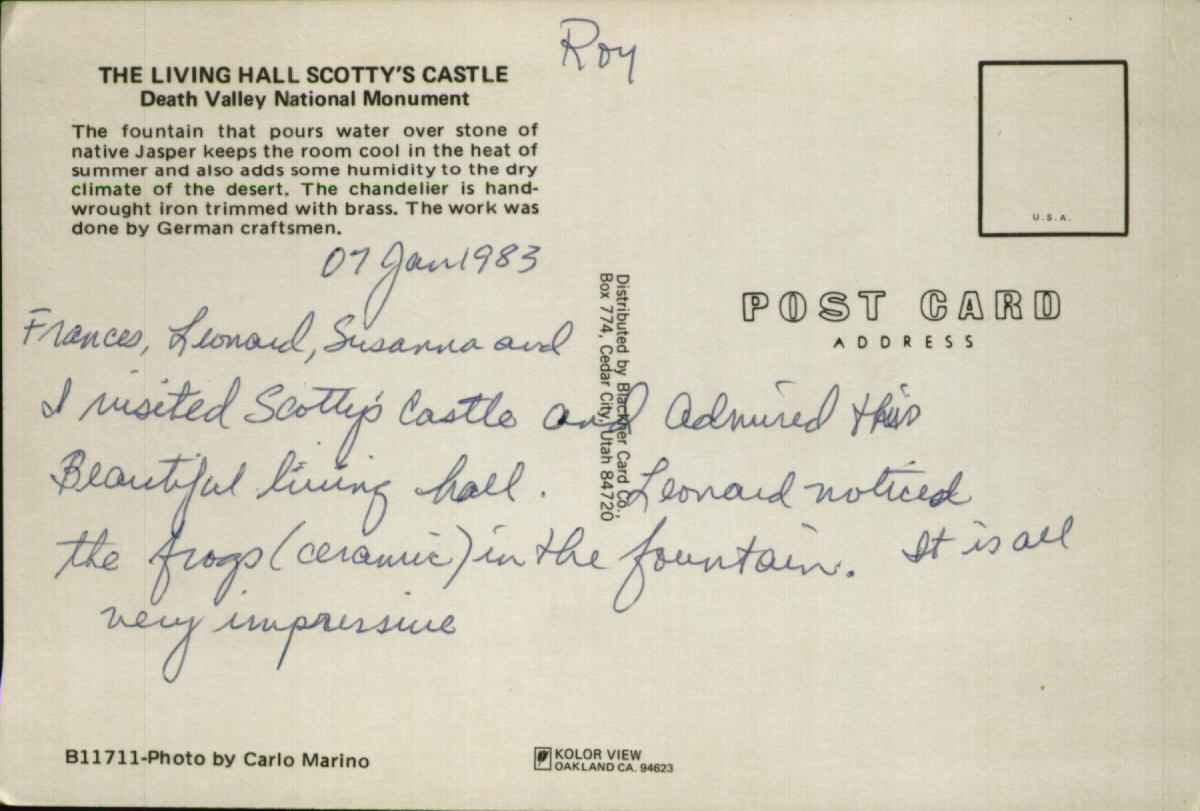 Roy
THE LIVING HALL SCOTTY'S CASTLE
Death Valley National Monument
The fountain that pours water over stone of
native Jasper keeps the room cool in the heat of
summer and also adds some humidity to the dry
climate of the desert. The chandelier is hand-
wrought iron trimmed with brass. The work was
done by German craftsmen.
07 Jan 1983
Frances, Leonard, Susanna and
I visited Scotty's Castle and Admired this
Beautiful living hall. Leonard noticed
the frogs (ceramic) in the fountain. It is all
very impressive
Distributed by Blackner Card Co.,
Box 774, Cedar City, Utah 84720
U.S.A.
POST CARD
ADDRESS
B11711-Photo by Carlo Marino
KOLOR VIEW
OAKLAND CA. 94623